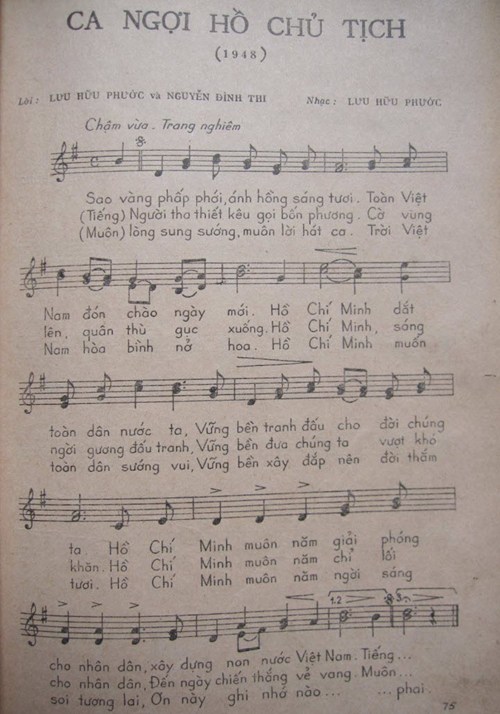 CA NGỢI HỒ CHỦ TỊCH
(1948)
Lời: LƯU HỮU PHƯỚC và NGUYỄN ĐÌNH THI Nhạc: LƯU HỮU PHƯỚC
Chậm vừa. Trang nghiêm
Sao vàng phấp phới, ánh hồng sáng tươi. Toàn Việt
(Tiếng) Người tha thiết kêu gọi bốn phương. Cờ vùng
(Muôn) lòng sung sướng, muôn lời hát ca. Trời Việt
Nam đón chào ngày mới. Hồ Chí Minh dắt
lên, quân thù gục xuống. Hồ Chí Minh, sáng
Nam hòa bình nở hoa. Hồ Chí Minh muốn
toàn dân nước ta, Vững bền tranh đấu cho đời chúng
ngời gương đấu tranh, Vững bền đưa chúng ta vượt khó
toàn dân sướng vui, Vững bền xây đắp nên đời thắm
ta Hồ Chí Minh muôn năm giải phóng
khăn. Hồ Chí Minh muôn năm chỉ lối
tươi. Hồ Chí Minh muôn năm ngời sáng
1.2 3.
cho nhân dân, xây dựng non nước Việt Nam. Tiếng...
cho nhân dân, Đến ngày chiến thắng vẻ vang. Muôn...
soi tương lai, Ơn này ghi nhớ nào... ...phai.
75